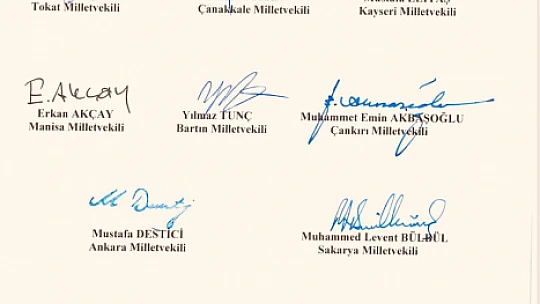 Tokat Milletvekili
Çanakkale Milletvekili
Kayseri Milletvekili
E. AKÇAY
Erkan AKÇAY
Manisa Milletvekili
Yılmaz TUNÇ
Bartın Milletvekili
Muhammet Emin AKBAŞOĞLU
Çankırı Milletvekili
M Destici
Mustafa DESTİCİ
Ankara Milletvekili
Muhammed Levent BÜLBÜL
Sakarya Milletvekili